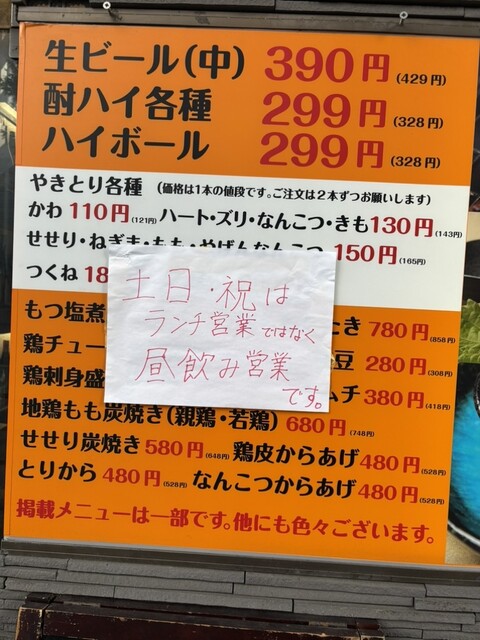 生ビール(中) 390円(429円)
酎ハイ各種 299円(328円)
ハイボール 299円(328円)
やきとり各種 (価格は1本の値段です。ご注文は2本ずつお願いします)
かわ 110円(121円) ハート・ズリ・なんこつ・きも130円(143円)
せせり・ねぎま・もも・やげんなんこつ 150円(165円)
つくね 18
土日・祝は
ランチ営業ではなく
昼飲み営業
です。
もつ塩煮 たき 780円(858円)
鶏チュー 豆 280円(308円)
鶏刺身盛 ムチ 380円(418円)
地鶏もも炭焼き(親鶏・若鶏) 680円(748円)
せせり炭焼き 580円(648円) 鶏皮からあげ480円(528円)
とりから 480円(528円) なんこつからあげ480円(528円)
掲載メニューは一部です。他にも色々ございます。